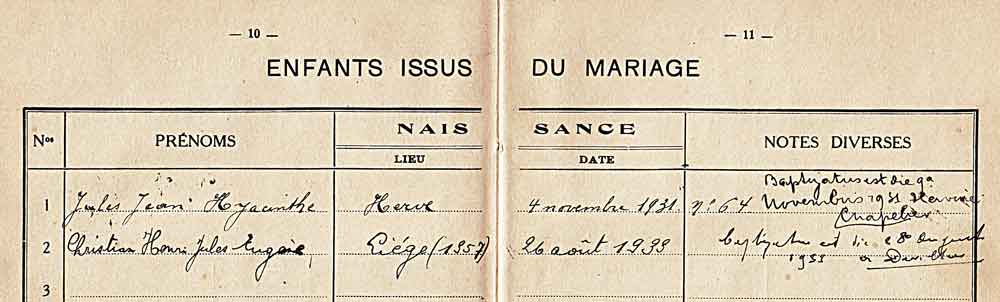 — 10 —
— 11 —
ENFANTS ISSUS DU MARIAGE
Nos PRÉNOMS NAISSANCE NOTES DIVERSES
LIEU DATE
Baptizatus est die 9a
1 Jules Jean Hyacinthe Herve 4 novembre 1931. n° 64 Novembris 1931
Chapelier
2 Christian Henri Jules Eugène, Liége (1357) 26 août 1933 est die 28 August
1933 a
3